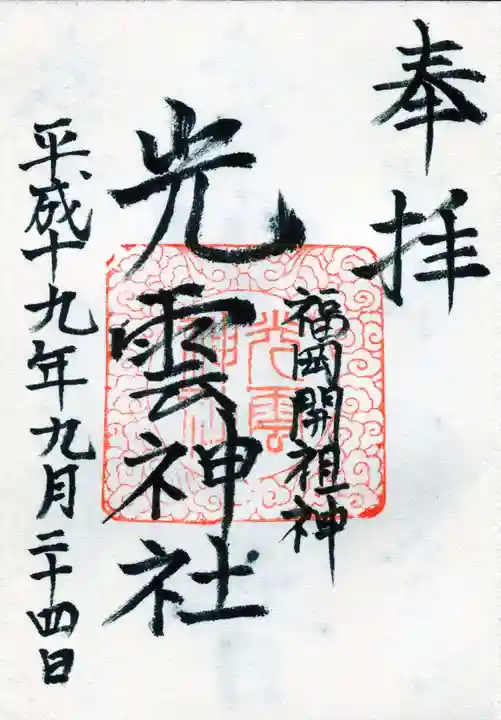 奉拝
福岡開祖神
光雲神社
光雲神社
平成十九年九月二十四日